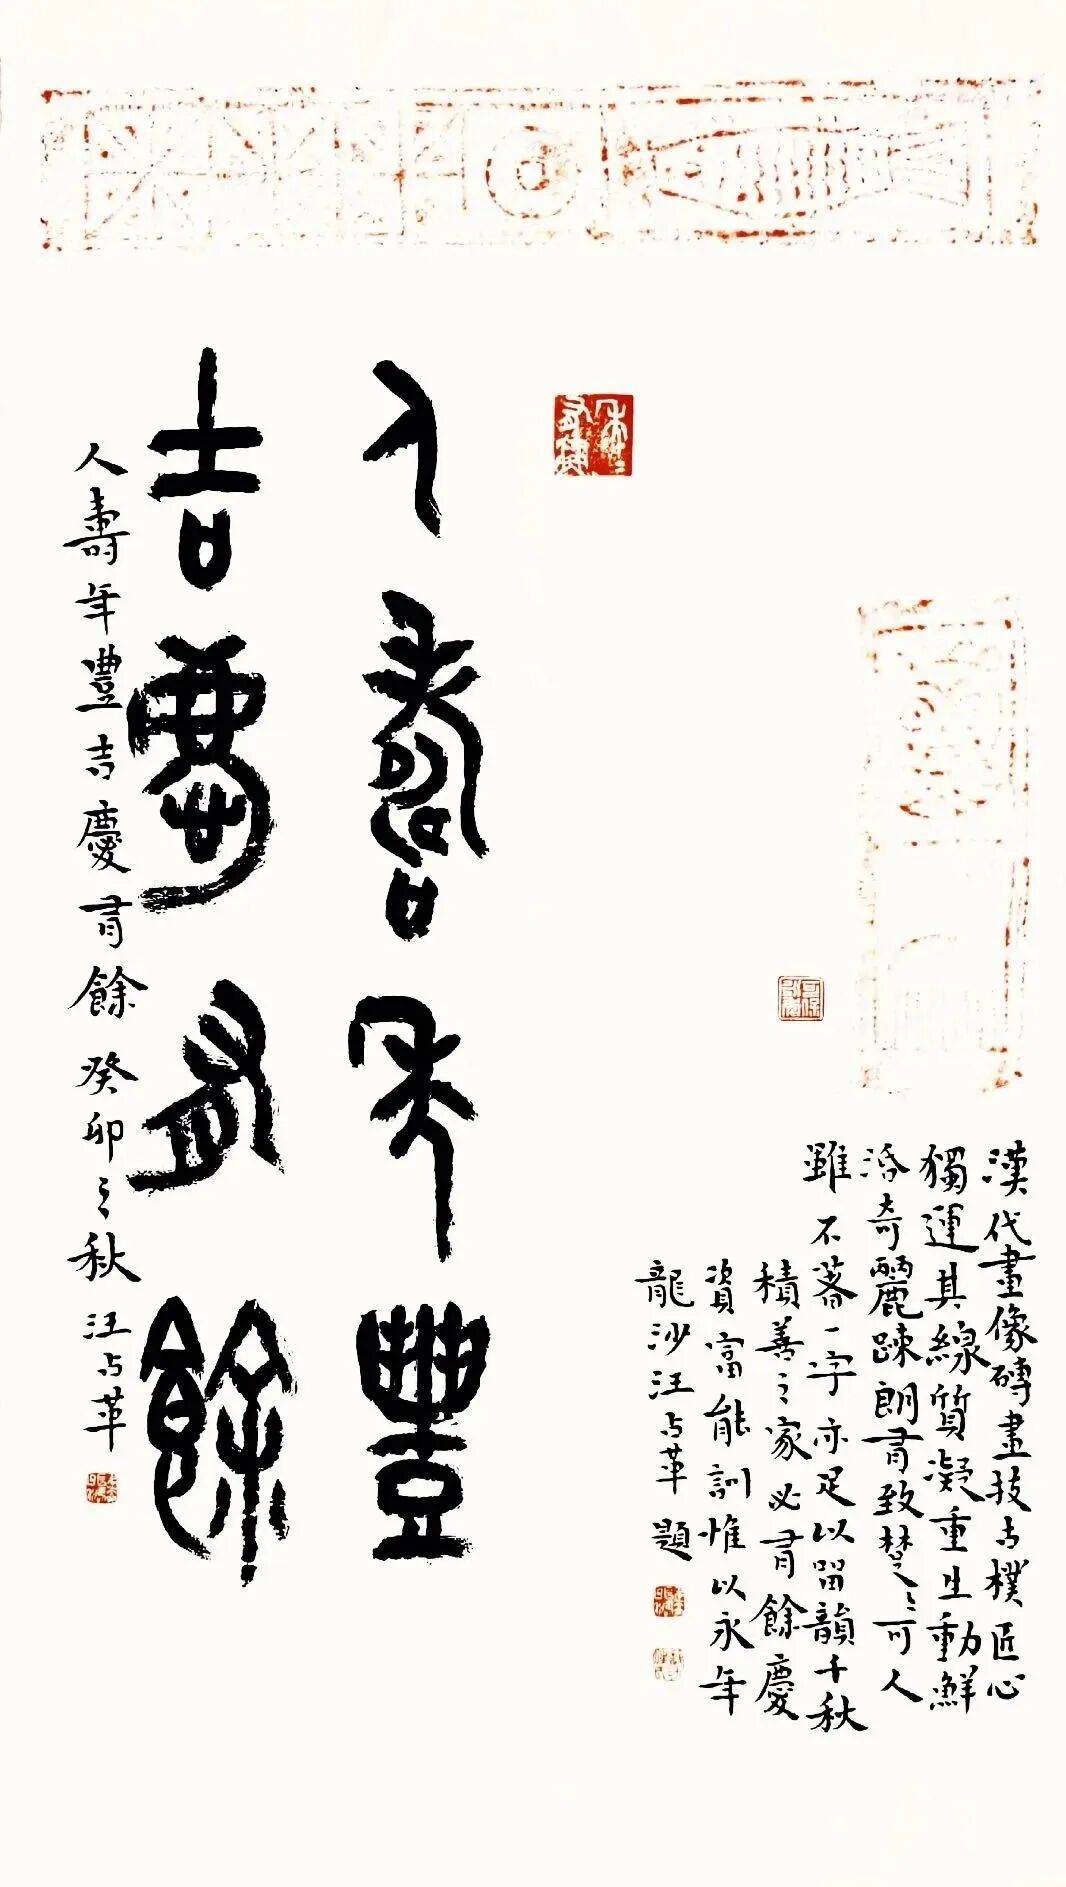 漢代畫像磚畫技古樸匠心
獨運其線質凝重生動鮮
活奇麗疎朗有致楚〻可人
雖不著一字亦足以留韻千秋
積善之家必有餘慶
資富能訓惟以永年
龍沙汪占革題
人壽年豐
吉慶有餘
人壽年豐吉慶有餘 癸卯之秋 汪占革